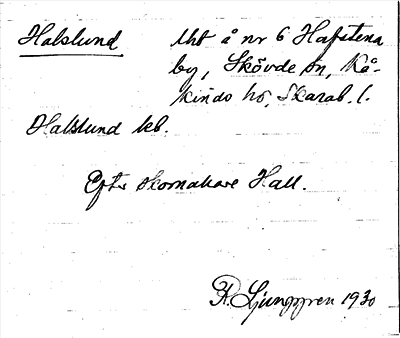 Halslund Uht å nr 6 Hafstena
by, Skövde sn, Kå-
kinds hd, Skarab. l.
Hallslund kb.
Efter skomakare Hall.
R. Ljunggren 1930